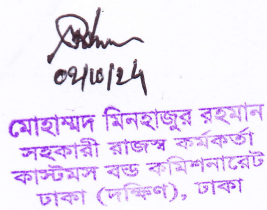 02/10/24
মোহাম্মদ মিনহাজুর রহমান
সহকারী রাজস্ব কর্মকর্তা
কাস্টমস বন্ড কমিশনারেট
ঢাকা (দক্ষিণ), ঢাকা